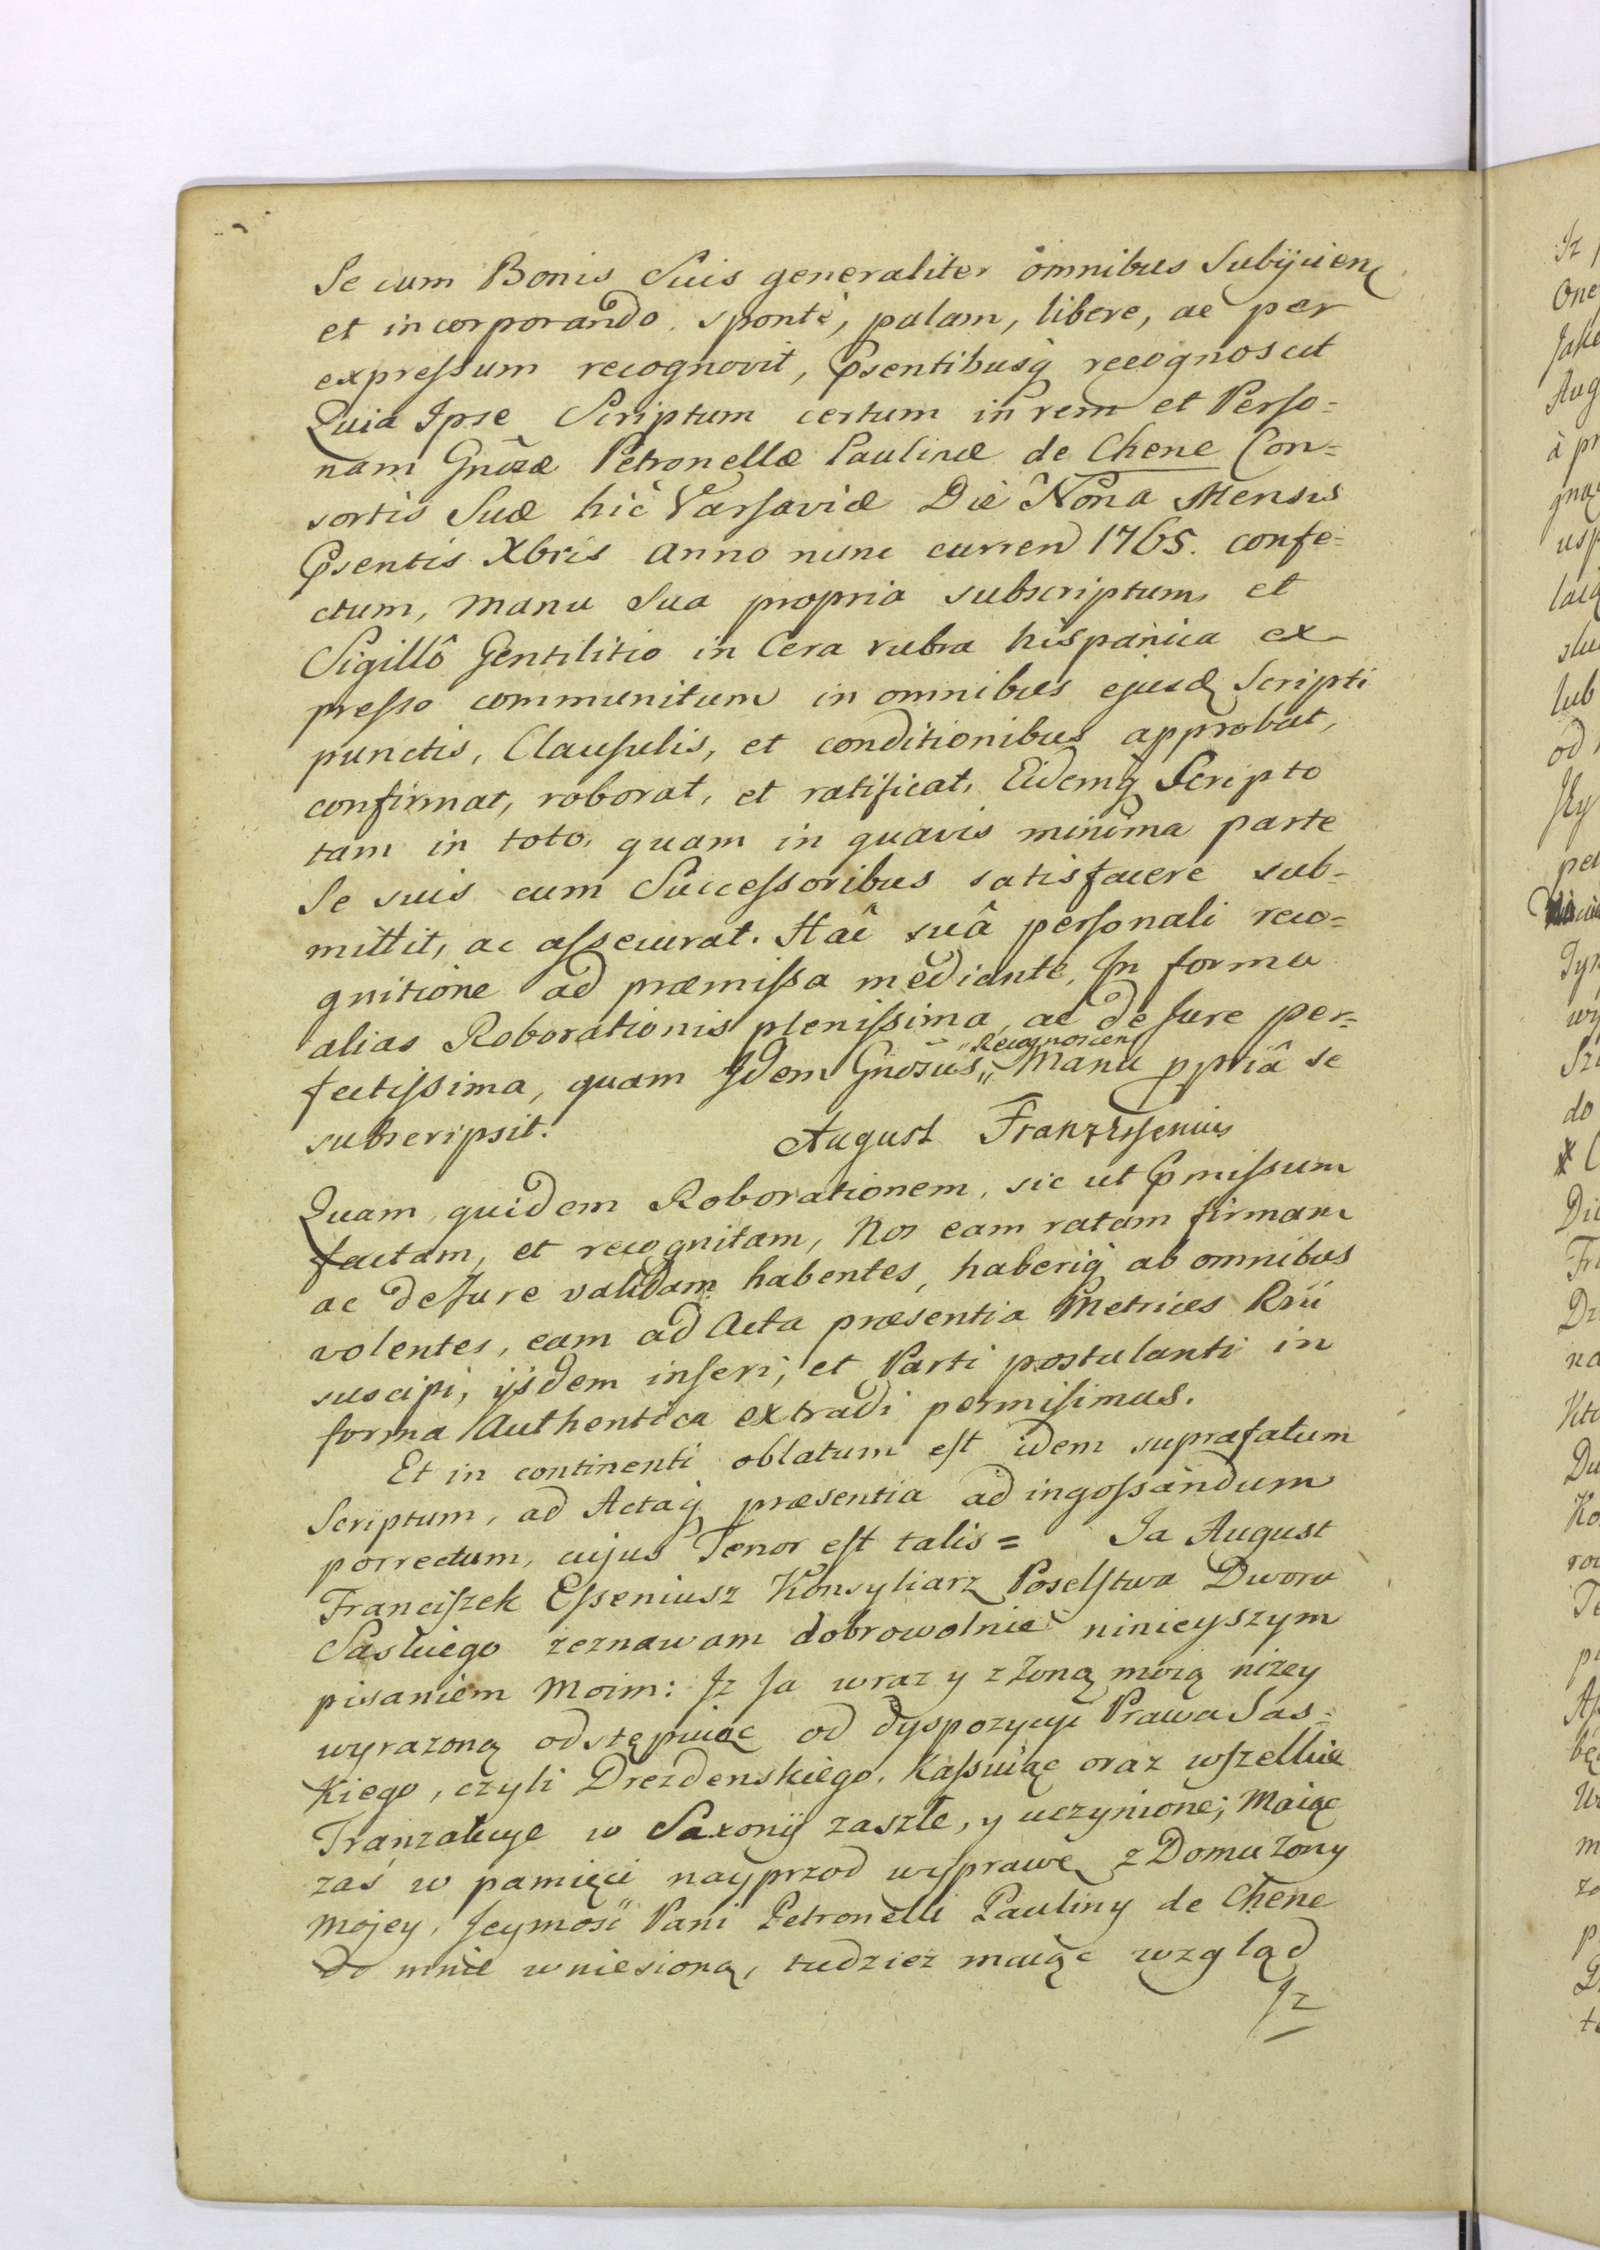 Se cum Bonis Suis generaliter omnibus Subÿcien
et incorporando sponte, palam, libere, ac per
expressum recognovit, Psentibusq recognoscit
Quia Ipse Scriptum certum in rem et Perso=
nam Gnosæ Petronellæ Paulinæ de Chene Con=
sortis Suæ hic Varsaviæ Die Nona Mensis
Psentis Xbris Anno nunc curren 1765. confe=
ctum, manu Sua propria subscriptum, et
Sigillô Gentilitio in Cera rubra hispanica ex
presso communitum in omnibus ejusd Scripti
punctis, Clausulis, et conditionibus approbat,
confirmat, roborat, et ratificat, Eidemq Scripto
tam in toto, quam in quavis minima parte
Se suis cum Successoribus satisfacere sub=
mittit, ac assecurat. Hac suâ personali reco=
gnitione ad præmissa mediante, In forma
alias Roborationis plenissima, ac de Jure per=
fectissima, quam Idem Gnosus "Recognoscen" Manu ppriâ se
subscripsit. August Franz Essenius
Quam quidem Roborationem, sic ut Pmissum
factam, et recognitam, Nos eam ratam firmam
ac de Jure validam habentes, haberiq ab omnibus
volentes, eam ad Acta præsentia Metrices Rni
suscipi, ÿsdem inseri, et Parti postulanti in
forma Authentica extradi permisimus.
Et in continenti oblatum est idem suprafatum
Scriptum, ad Actaq præsentia ad ingossandum
porrectum, cujus Tenor est talis = Ja August
Franciszek Esseniusz Konsyliarz Poselstwa Dworu
Saskiego zeznawam dobrowolnie ninieyszym
pisaniem Moim: Iz Ja wraz y z Zoną moią niżey
wyrazoną odstępuiąc od dyspozycyi Prawa Sas=
Kiego, czyli Drezdenskiego, Kassuiąc oraz wszelkie
Tranzakcye w Saxonÿ zaszłe, y uczynione; Maiąc
zaś w pamięci nayprzod wyprawę z Domu Zony
Mojey, Jeymosć Pani Petronelli Pauliny de Chene
do mnie wniesioną, tudziez maiąc wzgląd
Iz